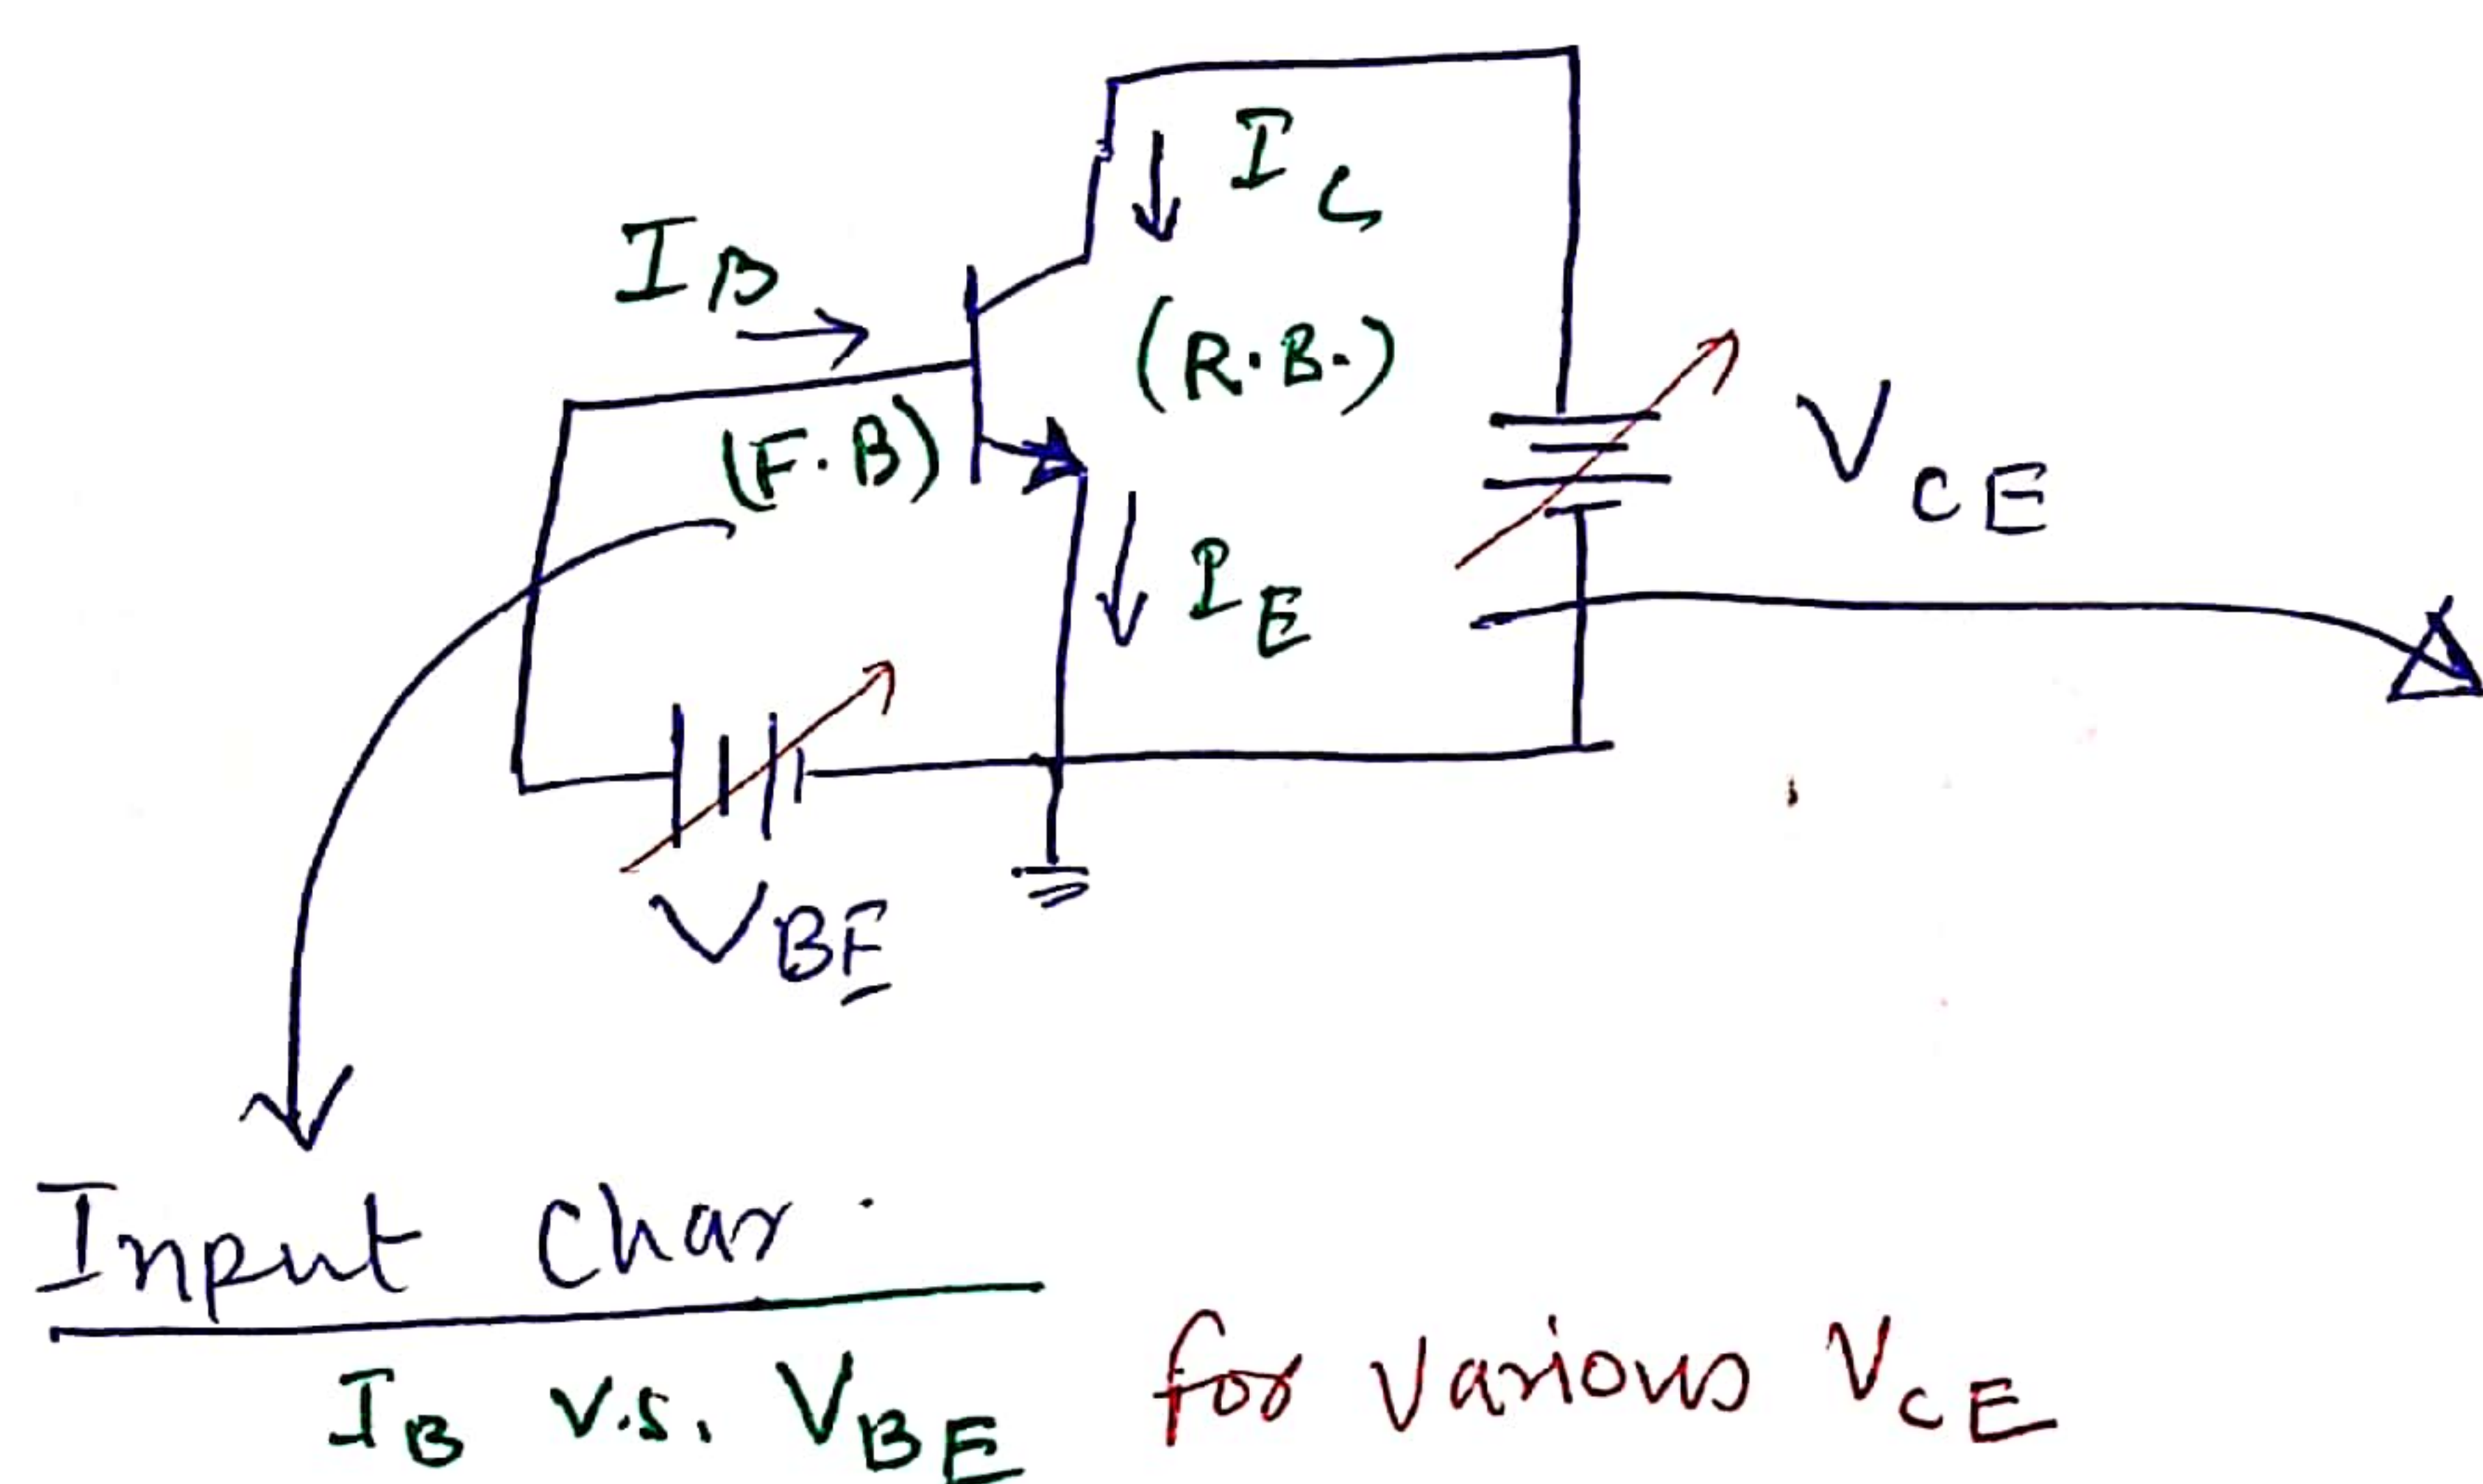 I C
I B
(R.B.)
(F.B)
V CE
I E
V BE
Input Char.
I B v.s. V BE for Various V CE